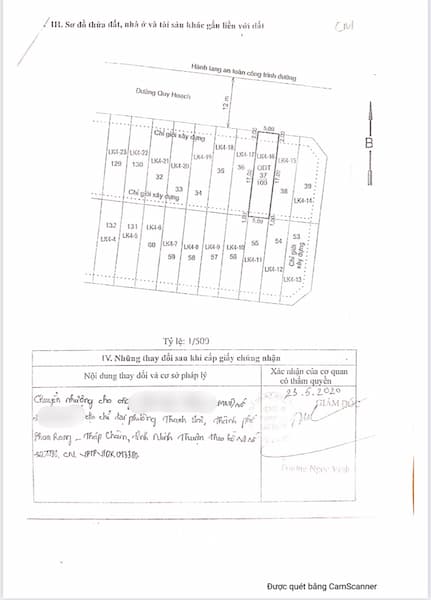 III. Sơ đồ thửa đất, nhà ở và tài sản khác gắn liền với đất
Hành lang an toàn công trình đường
Đường Quy Hoạch
12 m
Chỉ giới xây dựng
5.00
2.00
2.00
LK4-23
129
LK4-22
130
LK4-21
32
LK4-20
33
LK4-19
34
LK4-18
35
LK4-17
36
LK4-16
ODT
37
100
LK4-15
38
39
LK4-14
17.00
17.00
B
Chỉ giới xây dựng
5.00
1.00
132
LK4-4
131
LK4-5
LK4-6
60
LK4-7
59
LK4-8
58
LK4-9
57
LK4-10
56
55
LK4-11
54
LK4-12
53
Chỉ giới xây dựng
LK4-13
Tỷ lệ: 1/500
IV. Những thay đổi sau khi cấp giấy chứng nhận
Nội dung thay đổi và cơ sở pháp lý
Xác nhận của cơ quan có thẩm quyền
Chuyển nhượng cho
địa chỉ tại phường Thanh Sơn, Thành phố
Phan Rang - Tháp Chàm, tỉnh Ninh Thuận theo hồ sơ số
23.5.2020
GIÁM ĐỐC
Được quét bằng CamScanner